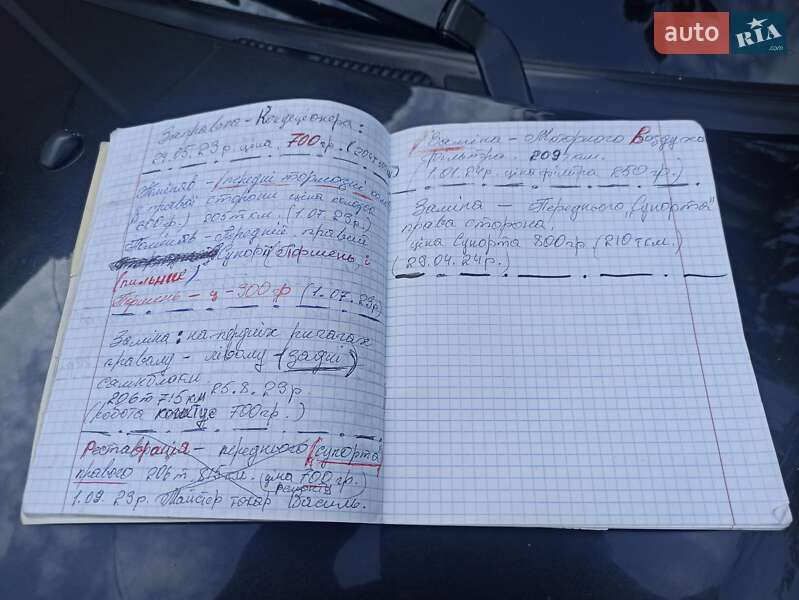 auto RIA .com
Заправка - Кондеціонера:
29.05.23р. ціна 700гр.
передні тормозні
правої сторони ціна колодок
600ф.) 205т км. (1.07.23р.)
Передній, правий
Супорт (Поршень, і
(пильник)
Поршень - ц - 900ф (1.07.23р)
Заміна: на передніх ричагах
правому - лівому - (задні)
самиблоки
206т 715км 25.8.23р.
(робота коштує 700гр.)
Реставрація - переднього (супорта
правого 206т 815км. (ціна 700гр.)
ремонту
1.09.23р. Майстер токар Василь.
Заміна - Моторного Воздухо
фільтра. 209 км.
1.01.24р. ціна фільтра 250гр.)
Заміна - Переднього „Супорта"
права сторона,
ціна Супорта 800гр (210т км.)
(29.04.24р.)